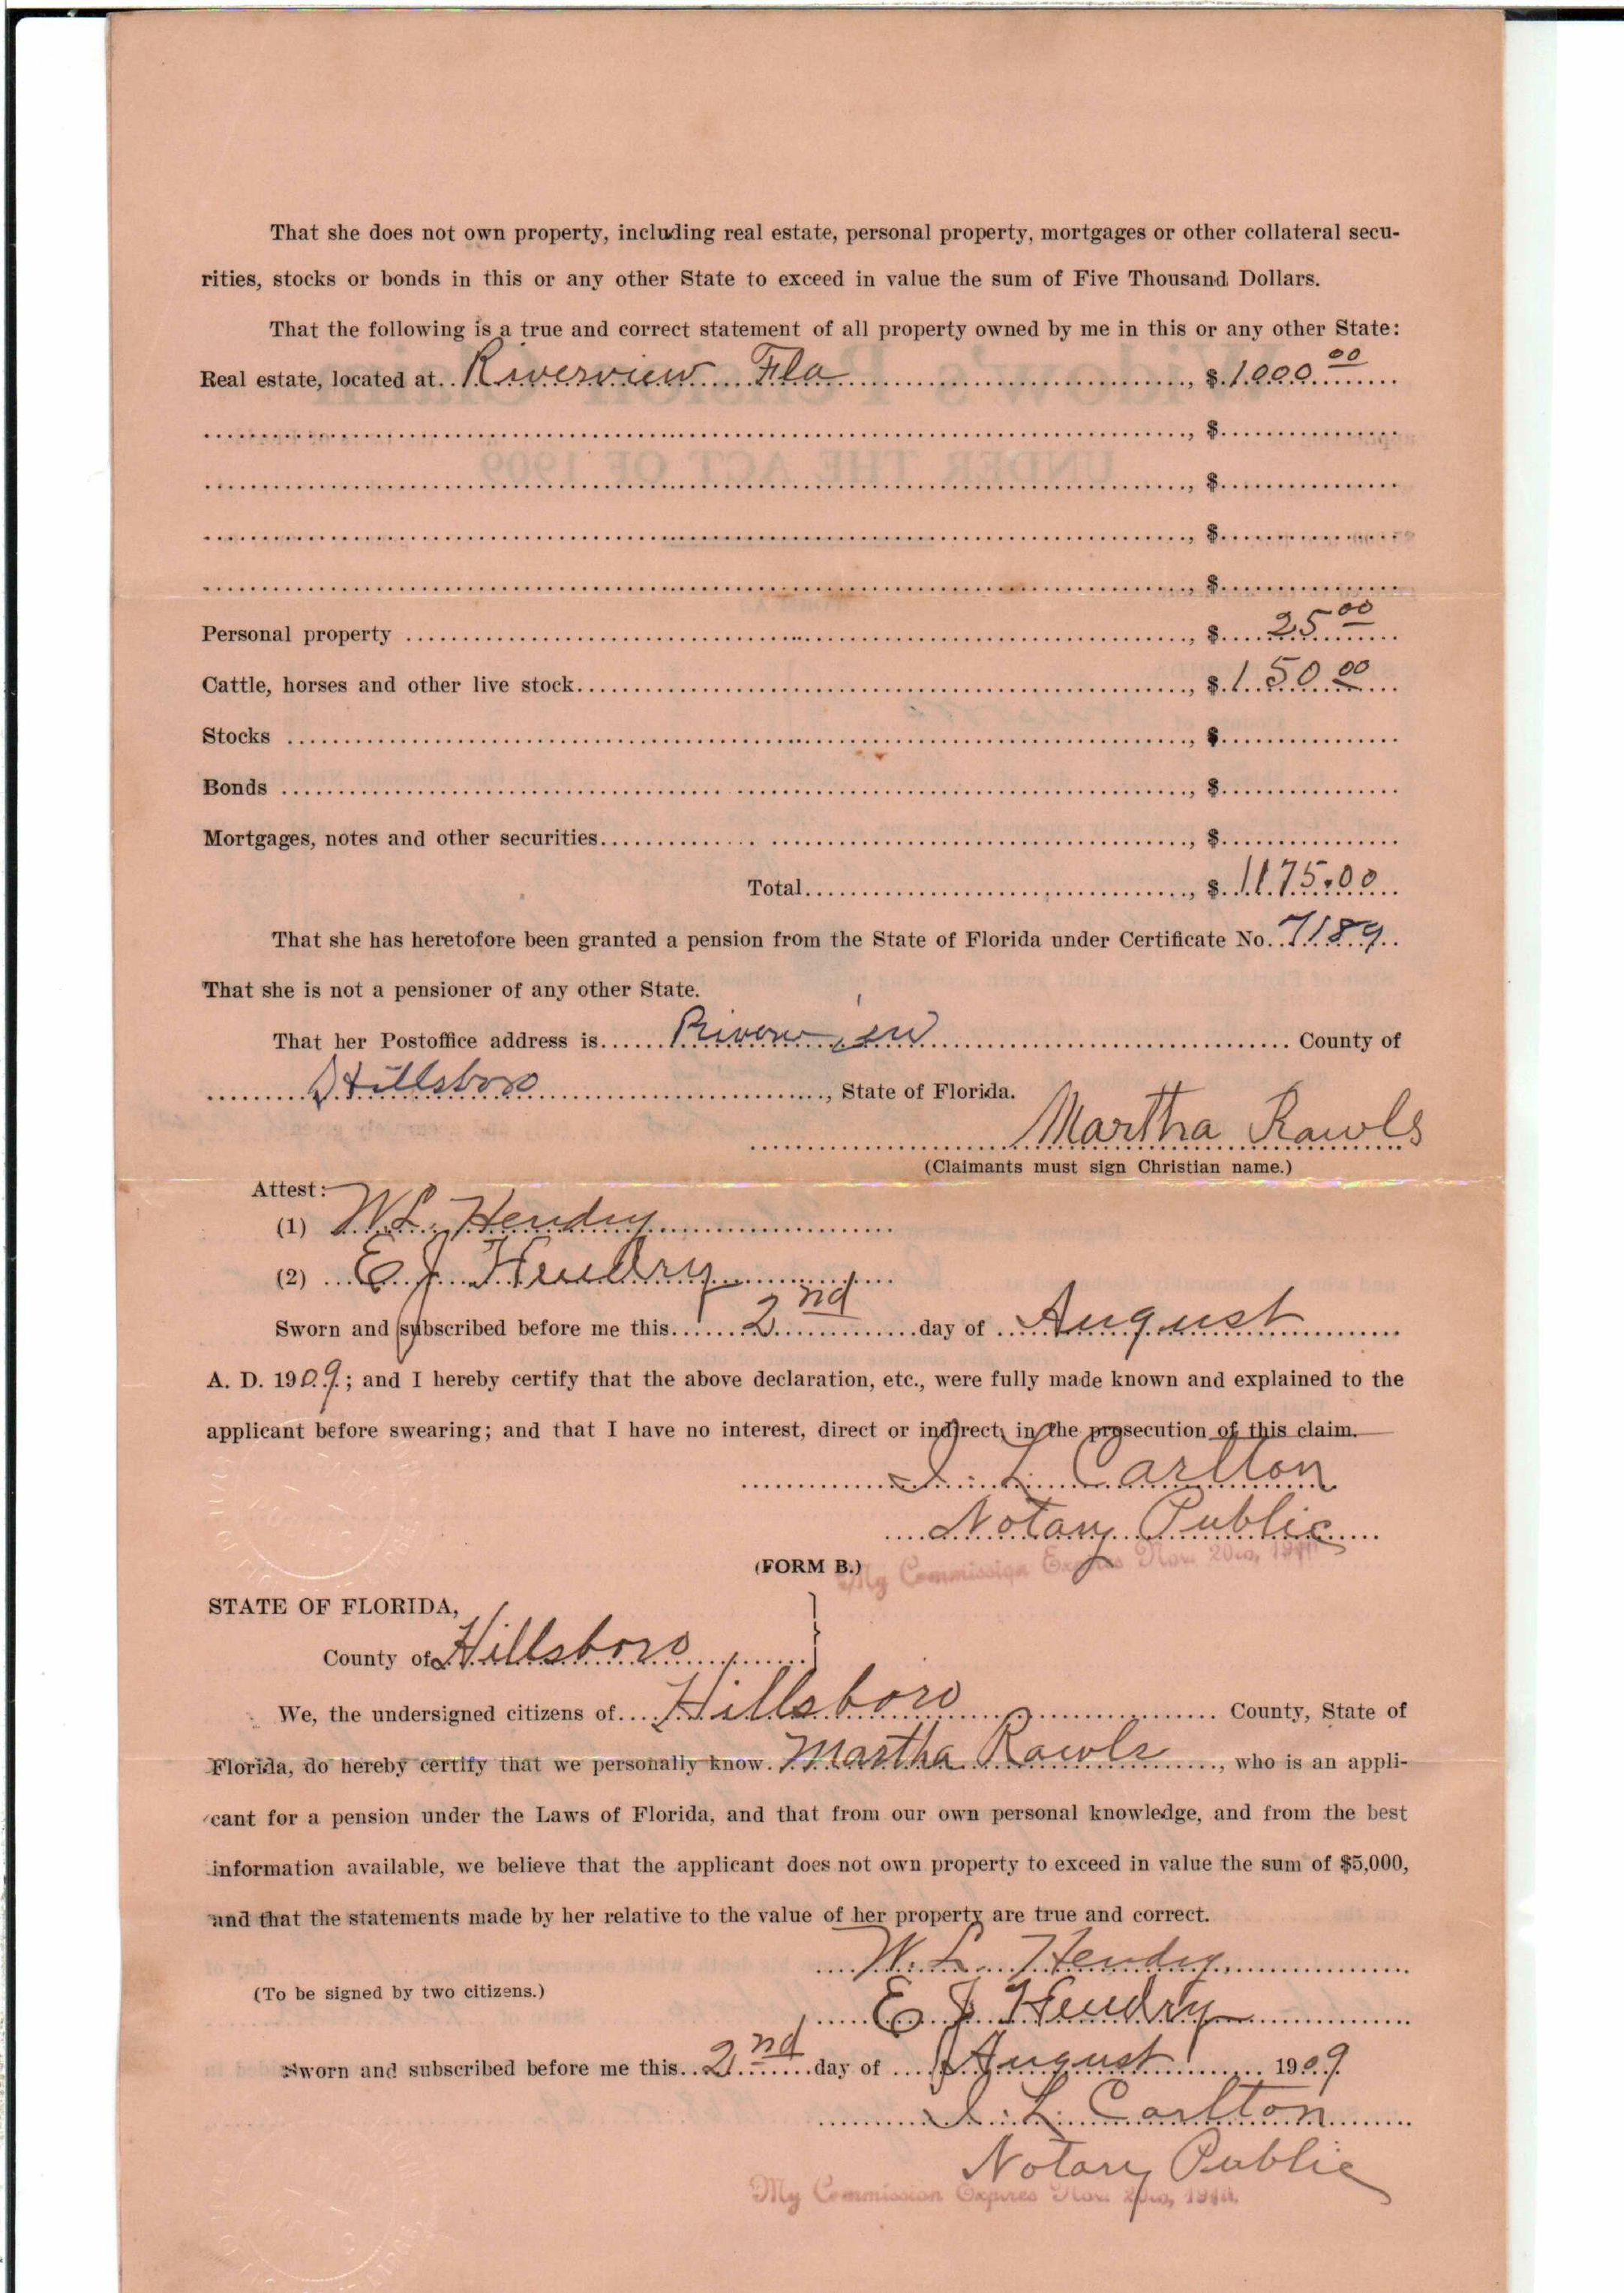 That she does not own property, including real estate, personal property, mortgages or other collateral secu-
rities, stocks or bonds in this or any other State to exceed in value the sum of Five Thousand Dollars.
That the following is a true and correct statement of all property owned by me in this or any other State:
Real estate, located at Riverview Fla, $1000.00
, $
, $
, $
, $
Personal property, $25.00
Cattle, horses and other live stock, $150.00
Stocks, $
Bonds, $
Mortgages, notes and other securities, $
Total, $1175.00
That she has heretofore been granted a pension from the State of Florida under Certificate No. 7189.
That she is not a pensioner of any other State.
That her Postoffice address is Riverview County of
Hillsboro, State of Florida.
Martha Rawls
(Claimants must sign Christian name.)
Attest:
(1) W.L. Hendry
(2) E J Hendry
Sworn and subscribed before me this 2nd day of August
A. D. 1909; and I hereby certify that the above declaration, etc., were fully made known and explained to the
applicant before swearing; and that I have no interest, direct or indirect, in the prosecution of this claim.
L. Carlton
Notary Public
My Commission Expires Nov.
(FORM B.)
STATE OF FLORIDA,
County of Hillsboro
We, the undersigned citizens of Hillsboro County, State of
Florida, do hereby certify that we personally know Martha Rawls, who is an appli-
cant for a pension under the Laws of Florida, and that from our own personal knowledge, and from the best
information available, we believe that the applicant does not own property to exceed in value the sum of $5,000,
and that the statements made by her relative to the value of her property are true and correct.
W. L. Hendry
(To be signed by two citizens.)
E J Hendry
Sworn and subscribed before me this 2nd day of August 1909
L. Carlton
Notary Public
My Commission Expires Nov.